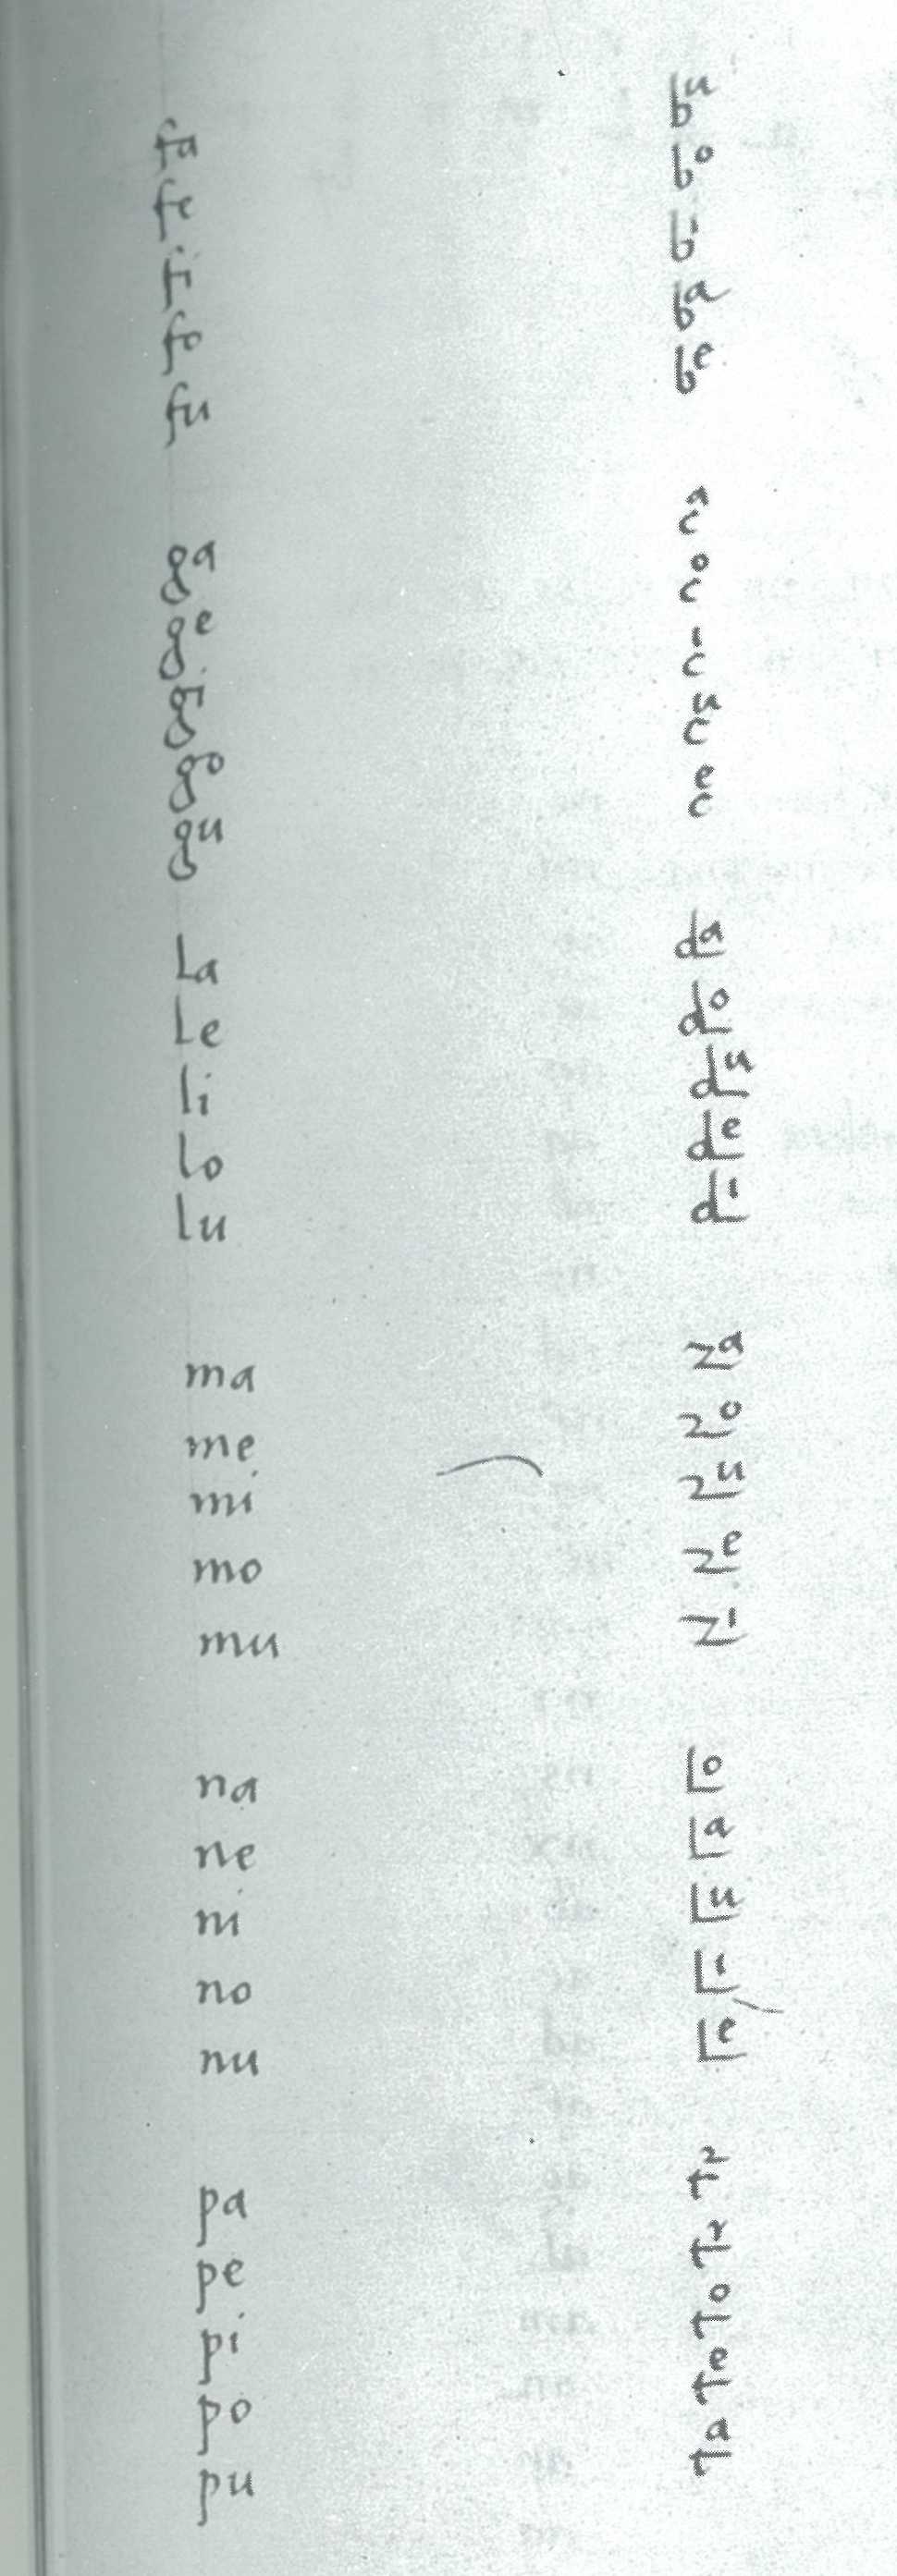 fa
fe
fi
fo
fu
ga
ge
gi
go
gu
La
Le
li
lo
lu
ma
me
mi
mo
mu
na
ne
ni
no
nu
pa
pe
pi
po
pu
bu
bo
bi
ba
be
ca
co
ci
cu
ce
da
do
du
de
di
za
zo
zu
ze
zi
Lo
La
Lu
Li
Le
to
te
ta